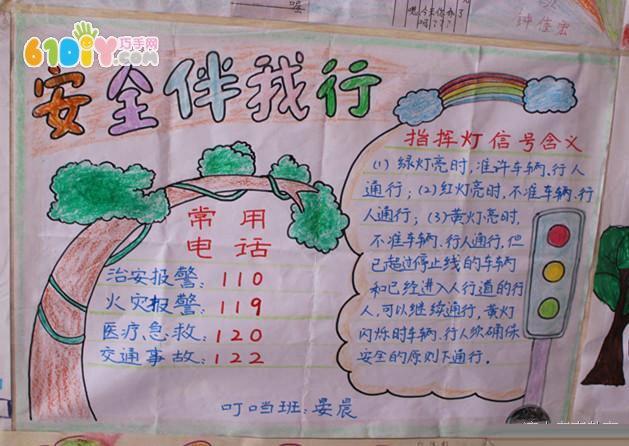 61DIY巧手网
钟佳宏
安全伴我行
指挥灯信号含义
(1)绿灯亮时,准许车辆、行人
通行;(2)红灯亮时,不准车辆、行
人通行;(3)黄灯亮时,
不准车辆、行人通行,但
已超过停止线的车辆
和已经进入人行道的行
人,可以继续通行,黄灯
闪烁时车辆、行人须确保
安全的原则下通行.
常用
电话
治安报警:110
火灾报警:119
医疗急救:120
交通事故:122
叮当班:晏晨